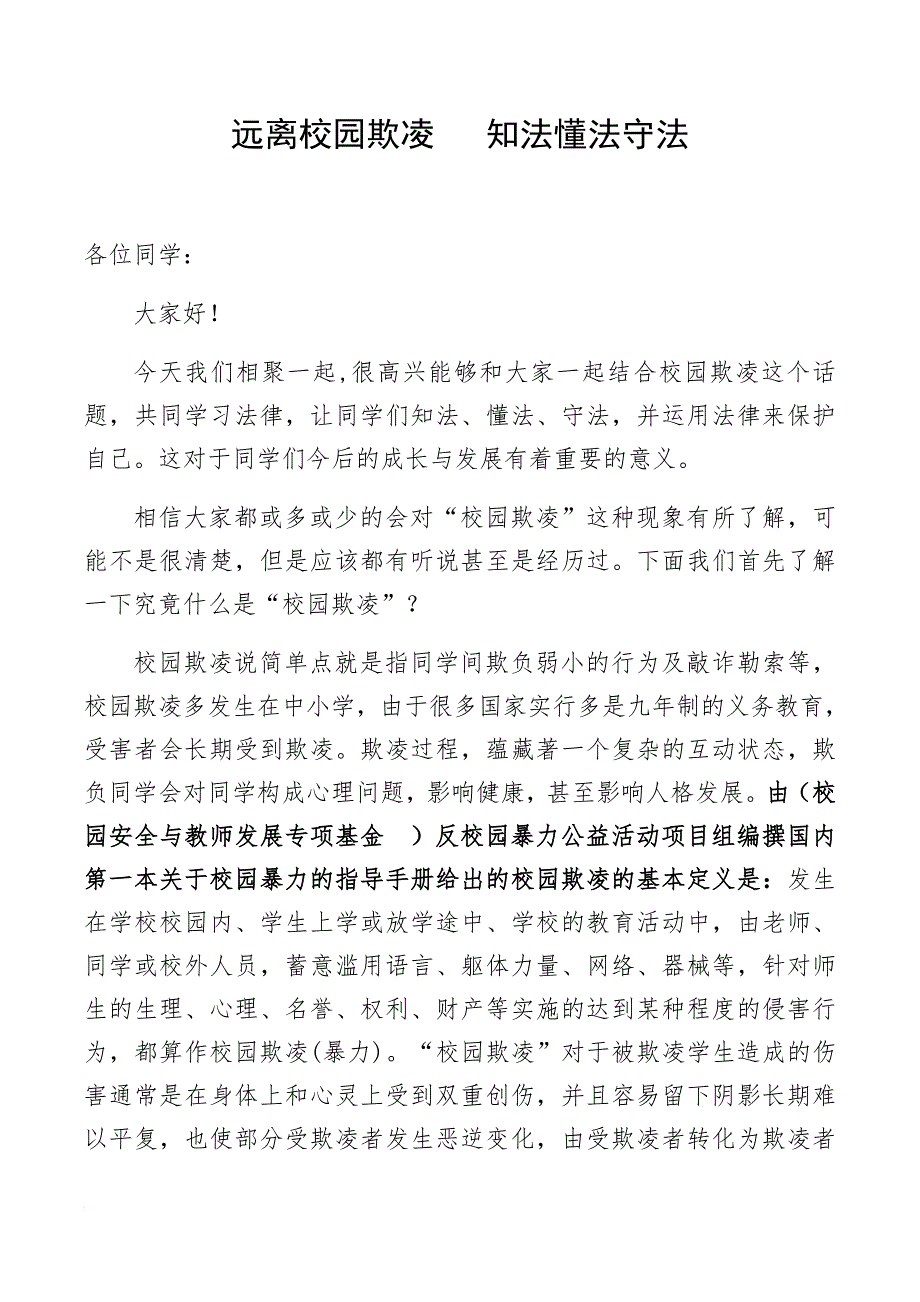 远离校园欺凌 知法懂法守法
各位同学：
大家好！
今天我们相聚一起,很高兴能够和大家一起结合校园欺凌这个话
题，共同学习法律，让同学们知法、懂法、守法，并运用法律来保护
自己。这对于同学们今后的成长与发展有着重要的意义。
相信大家都或多或少的会对“校园欺凌”这种现象有所了解，可
能不是很清楚，但是应该都有听说甚至是经历过。下面我们首先了解
一下究竟什么是“校园欺凌”？
校园欺凌说简单点就是指同学间欺负弱小的行为及敲诈勒索等，
校园欺凌多发生在中小学，由于很多国家实行多是九年制的义务教育，
受害者会长期受到欺凌。欺凌过程，蕴藏著一个复杂的互动状态，欺
负同学会对同学构成心理问题，影响健康，甚至影响人格发展。由（校
园安全与教师发展专项基金 ）反校园暴力公益活动项目组编撰国内
第一本关于校园暴力的指导手册给出的校园欺凌的基本定义是：发生
在学校校园内、学生上学或放学途中、学校的教育活动中，由老师、
同学或校外人员，蓄意滥用语言、躯体力量、网络、器械等，针对师
生的生理、心理、名誉、权利、财产等实施的达到某种程度的侵害行
为，都算作校园欺凌(暴力)。“校园欺凌”对于被欺凌学生造成的伤
害通常是在身体上和心灵上受到双重创伤，并且容易留下阴影长期难
以平复，也使部分受欺凌者发生恶逆变化，由受欺凌者转化为欺凌者